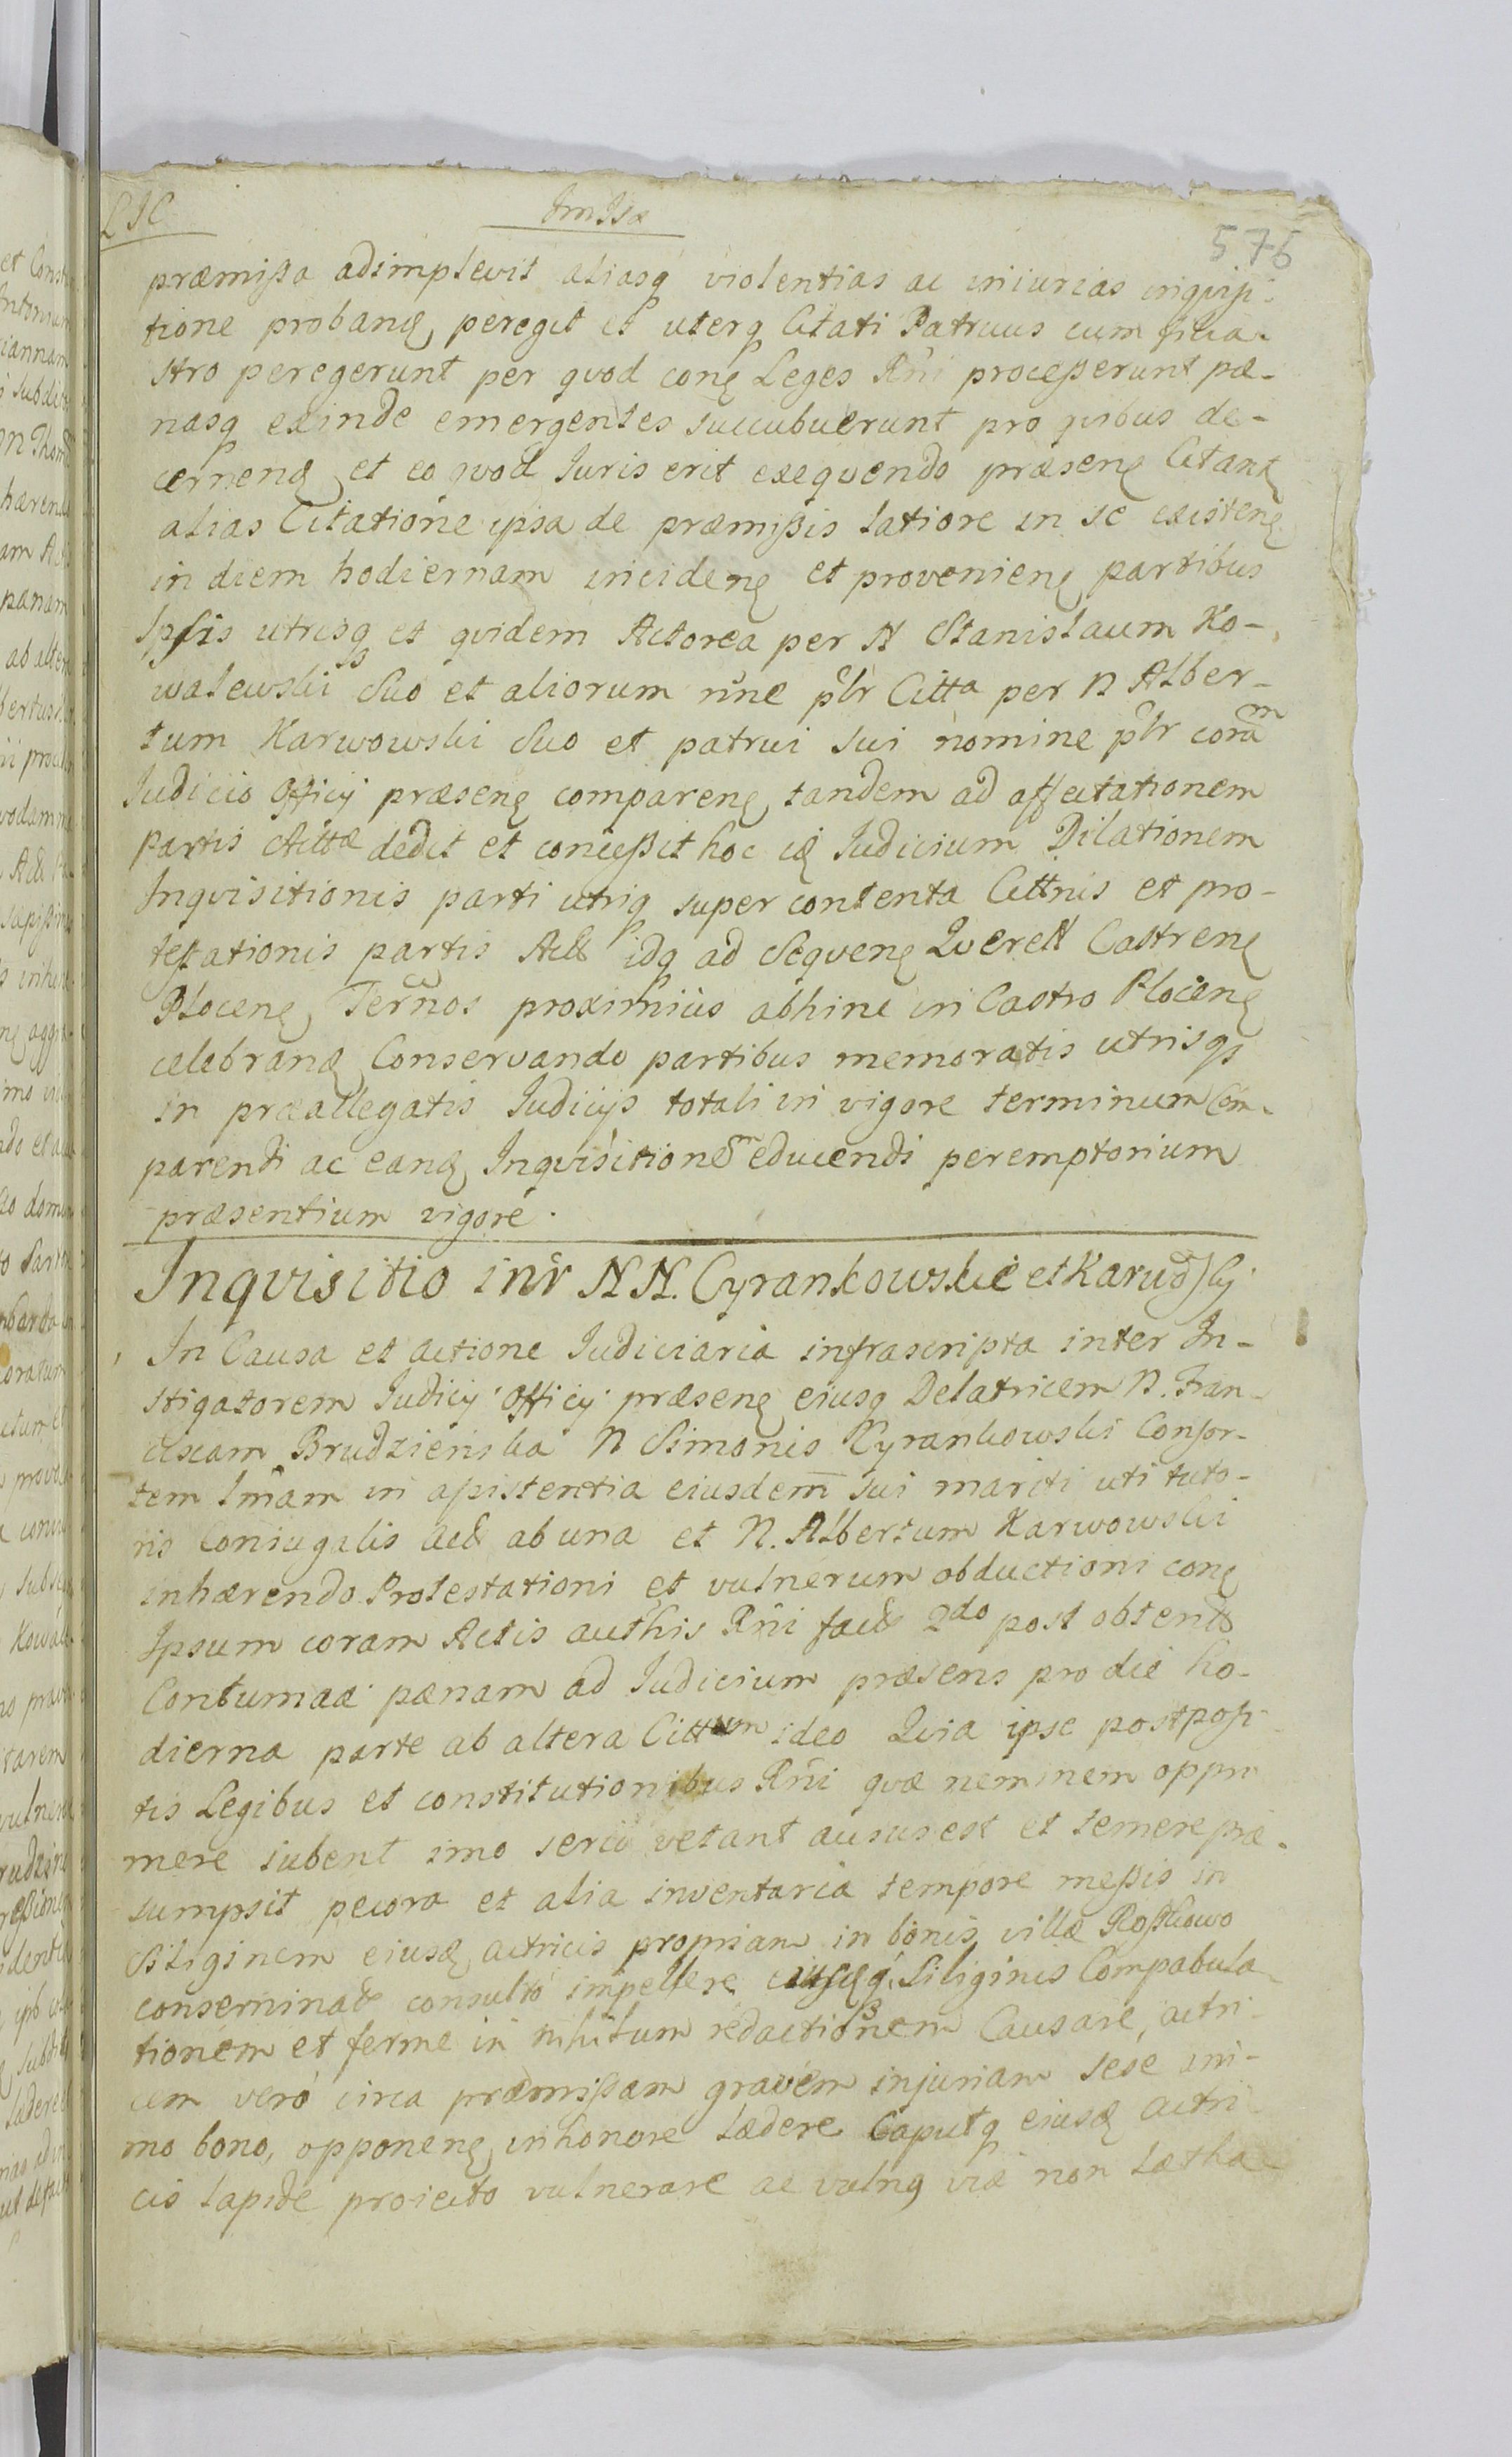 576
præmißa adimplevit aliasq violentias ac iniurias inqvisi-
tione proban peregit et uterq Citati Patruus cum filia-
stro peregerunt per qvod con Leges Rñi proceßerunt pæ-
nasq exinde emergentes succubuerunt pro qvibus de-
cernen et eo qvod Iuris erit exeqvendo præsen Citan
alias Citatione ipsa de præmißis latiore in se existen
in diem hodiernam inciden et provenien partibus
Ipsis utrisq et qvidem Actorea per N Stanislaum Ko-
walewski Suo et aliorum nne plr Citta per N Alber-
tum Karwowski Suo et patrui sui nomine plr coram
Iudicio Officij præsen comparen tandem ad affectationem
partis Cittæ dedit et conceßit hoc id Iudicium Dilationem
Inqvisitionis parti utriq super contenta Cittnis et pro-
testationis partis Act idq ad Seqven Qverell Castren
Plocen Termnos proximius abhinc in Castro Plocen
celebran Conservando partibus memoratis utrisq
in præallegatis Iudicijs totali in vigore terminum Com-
parendi ac eand Inqvisitionem educendi peremptorium
præsentium vigore.
Inqvisitio intr NN. Cyrankowskie et Karwowskj
In Causa et actione Iudiciaria infrascripta inter In-
stigatorem Iudicij Officij præsen eiusq Delatricem N. Fran-
ciscam Brudzienska N Simonis Cyrankowski Consor-
tem lmam in aßistentia eiusdem sui mariti uti tuto-
ris Coniugalis Act ab una et N. Albertum Karwowski
inhærendo Protestationi et vulnerum obductioni con
Ipsum coram Actis authis Rñi fact 2do post obtent
Contumaæ pænam ad Iudicium præsens pro die ho-
dierna parte ab altera Cittum ideo Qvia ipse postposi-
tis Legibus et constitutionibus Rñi qvæ neminem oppri
mere iubent imo serio vetant ausus est et temere præ-
sumpsit pecora et alia inventaria tempore meßis in
Siliginem eiusd actricis propriam in bonis villæ Roßkowo
conserninat consulto impellere eiusdq Siliginis Compabula-
tionem et ferme in nihilum redactionem Causare, actri-
cem vero circa præmißam gravem injuriam sese ani-
mo bono, opponen in honore lædere Caputq eiusd actri
cis lapide proiecto vulnerare ac vulnq viæ non læthæ